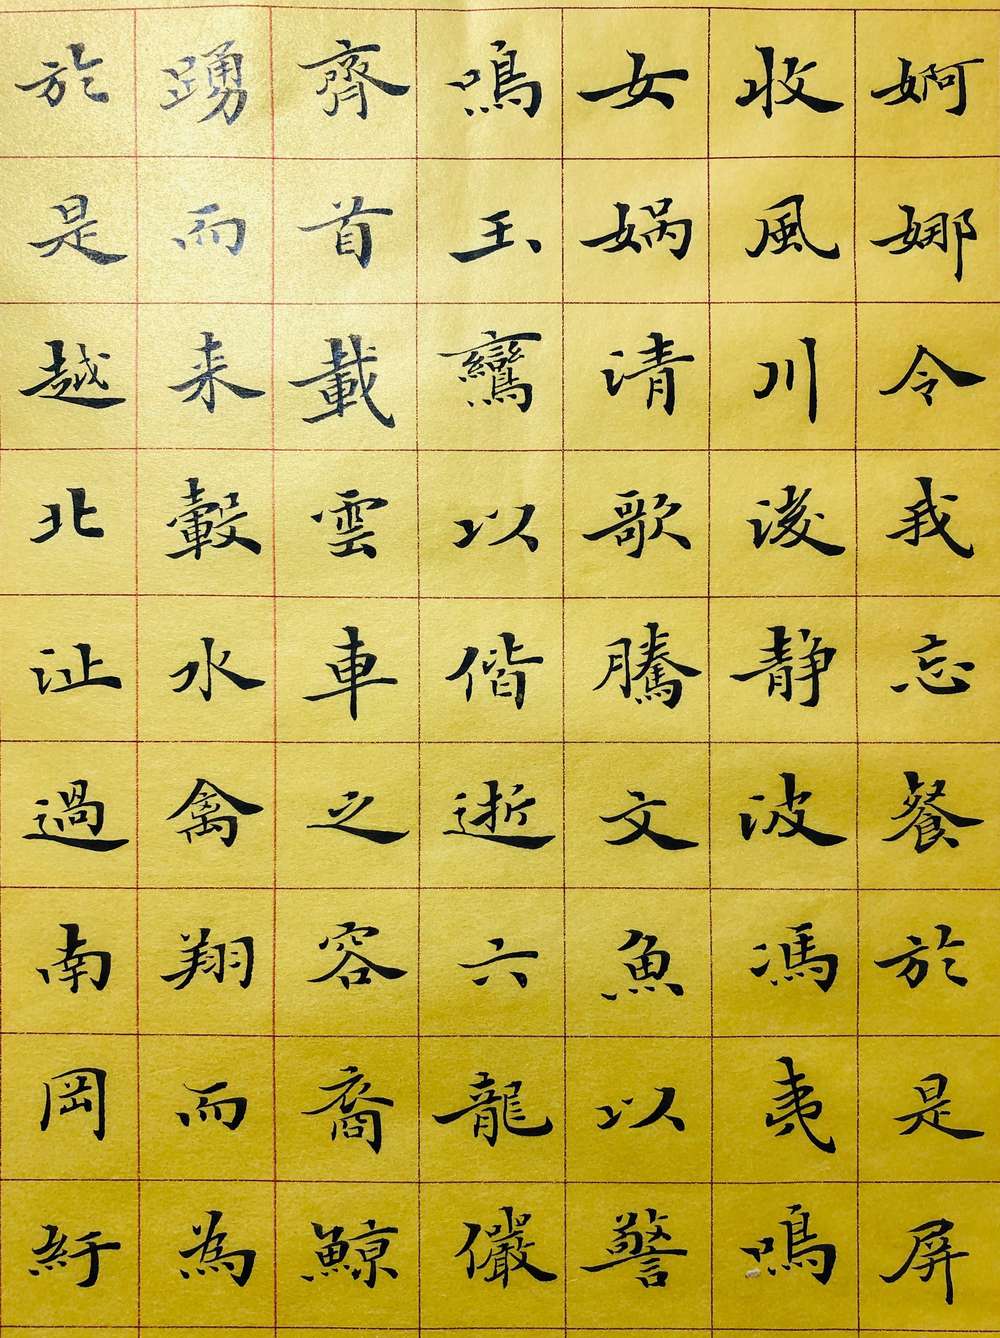 婀娜令我忘餐於是屏
收風川後静波馮夷鳴
女媧清歌騰文魚以警
鳴玉鸞以偕逝六龍儼
齊首載雲車之容裔鯨
踴而来轂水禽翔而為
於是越北沚過南岡紆